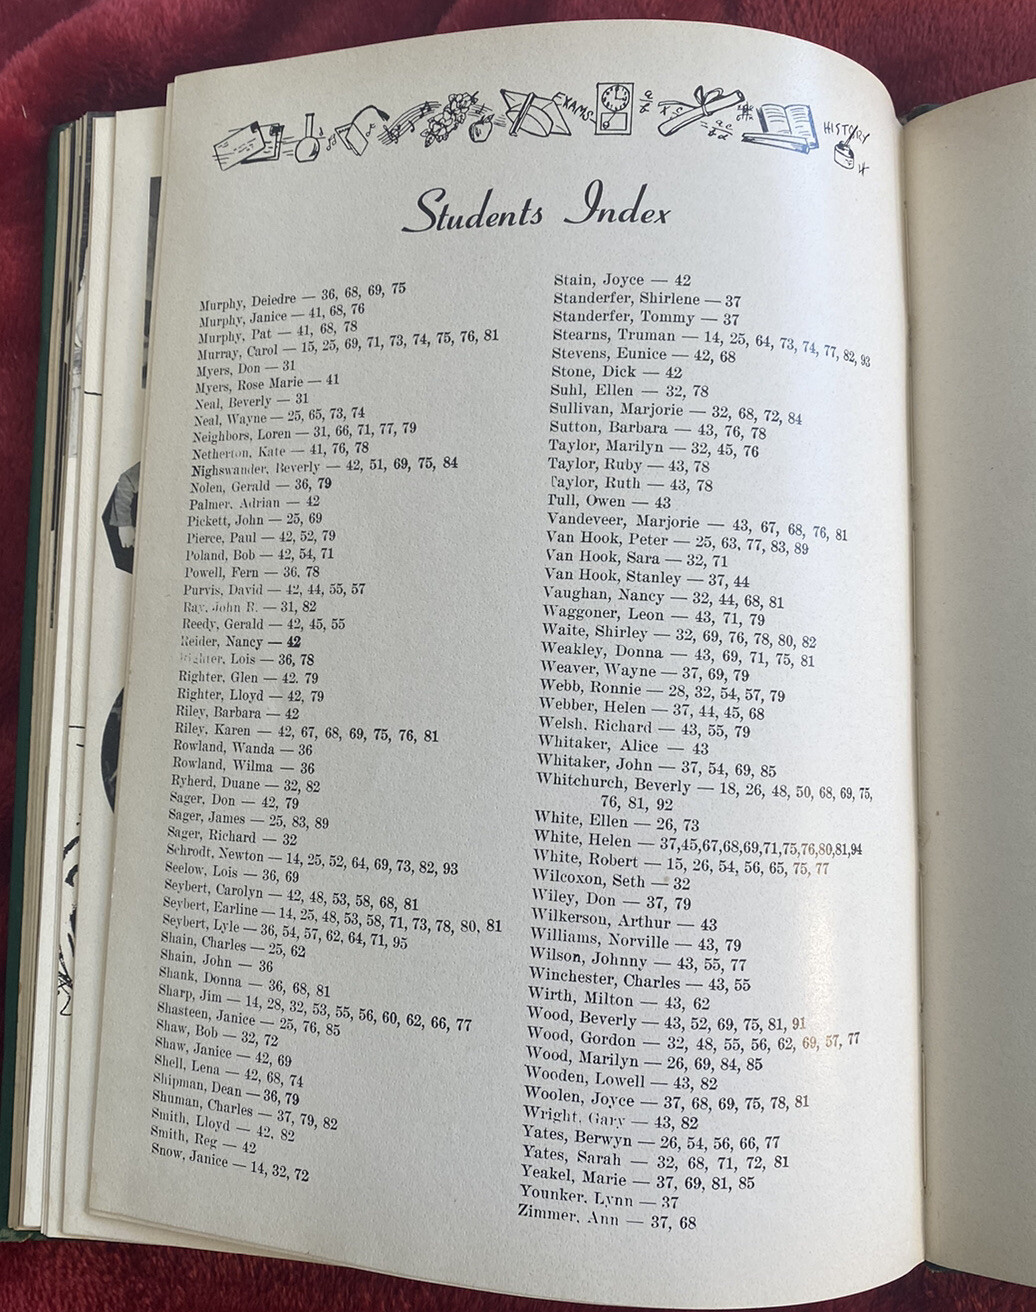 EXAMS
HISTORY
Students Index
Murphy, Deiedre — 36, 68, 69, 75
Murphy, Janice — 41, 68, 76
Murphy, Pat — 41, 68, 78
Murray, Carol — 15, 25, 69, 71, 73, 74, 75, 76, 81
Myers, Don — 31
Myers, Rose Marie — 41
Neal, Beverly — 31
Neal, Wayne — 25, 65, 73, 74
Neighbors, Loren — 31, 66, 71, 77, 79
Netherton, Kate — 41, 76, 78
Nighswander, Beverly — 42, 51, 69, 75, 84
Nolen, Gerald — 36, 79
Palmer, Adrian — 42
Pickett, John — 25, 69
Pierce, Paul — 42, 52, 79
Poland, Bob — 42, 54, 71
Powell, Fern — 36, 78
Purvis, David — 42, 44, 55, 57
Ray, John R. — 31, 82
Reedy, Gerald — 42, 45, 55
Reider, Nancy — 42
Righter, Lois — 36, 78
Righter, Glen — 42, 79
Righter, Lloyd — 42, 79
Riley, Barbara — 42
Riley, Karen — 42, 67, 68, 69, 75, 76, 81
Rowland, Wanda — 36
Rowland, Wilma — 36
Ryherd, Duane — 32, 82
Sager, Don — 42, 79
Sager, James — 25, 83, 89
Sager, Richard — 32
Schrodt, Newton — 14, 25, 52, 64, 69, 73, 82, 93
Seelow, Lois — 36, 69
Seybert, Carolyn — 42, 48, 53, 58, 68, 81
Seybert, Earline — 14, 25, 48, 53, 58, 71, 73, 78, 80, 81
Seybert, Lyle — 36, 54, 57, 62, 64, 71, 95
Shain, Charles — 25, 62
Shain, John — 36
Shank, Donna — 36, 68, 81
Sharp, Jim — 14, 28, 32, 53, 55, 56, 60, 62, 66, 77
Shasteen, Janice — 25, 76, 85
Shaw, Bob — 32, 72
Shaw, Janice — 42, 69
Shell, Lena — 42, 68, 74
Shipman, Dean — 36, 79
Shuman, Charles — 37, 79, 82
Smith, Lloyd — 42, 82
Smith, Reg — 42
Snow, Janice — 14, 32, 72
Stain, Joyce — 42
Standerfer, Shirlene — 37
Standerfer, Tommy — 37
Stearns, Truman — 14, 25, 64, 73, 74, 77, 82, 93
Stevens, Eunice — 42, 68
Stone, Dick — 42
Suhl, Ellen — 32, 78
Sullivan, Marjorie — 32, 68, 72, 84
Sutton, Barbara — 43, 76, 78
Taylor, Marilyn — 32, 45, 76
Taylor, Ruby — 43, 78
Taylor, Ruth — 43, 78
Tull, Owen — 43
Vandeveer, Marjorie — 43, 67, 68, 76, 81
Van Hook, Peter — 25, 63, 77, 83, 89
Van Hook, Sara — 32, 71
Van Hook, Stanley — 37, 44
Vaughan, Nancy — 32, 44, 68, 81
Waggoner, Leon — 43, 71, 79
Waite, Shirley — 32, 69, 76, 78, 80, 82
Weakley, Donna — 43, 69, 71, 75, 81
Weaver, Wayne — 37, 69, 79
Webb, Ronnie — 28, 32, 54, 57, 79
Webber, Helen — 37, 44, 45, 68
Welsh, Richard — 43, 55, 79
Whitaker, Alice — 43
Whitaker, John — 37, 54, 69, 85
Whitchurch, Beverly — 18, 26, 48, 50, 68, 69, 75,
76, 81, 92
White, Ellen — 26, 73
White, Helen — 37,45,67,68,69,71,75,76,80,81,94
White, Robert — 15, 26, 54, 56, 65, 75, 77
Wilcoxon, Seth — 32
Wiley, Don — 37, 79
Wilkerson, Arthur — 43
Williams, Norville — 43, 79
Wilson, Johnny — 43, 55, 77
Winchester, Charles — 43, 55
Wirth, Milton — 43, 62
Wood, Beverly — 43, 52, 69, 75, 81, 91
Wood, Gordon — 32, 48, 55, 56, 62, 69, 57, 77
Wood, Marilyn — 26, 69, 84, 85
Wooden, Lowell — 43, 82
Woolen, Joyce — 37, 68, 69, 75, 78, 81
Wright, Gary — 43, 82
Yates, Berwyn — 26, 54, 56, 66, 77
Yates, Sarah — 32, 68, 71, 72, 81
Yeakel, Marie — 37, 69, 81, 85
Younker, Lynn — 37
Zimmer, Ann — 37, 68